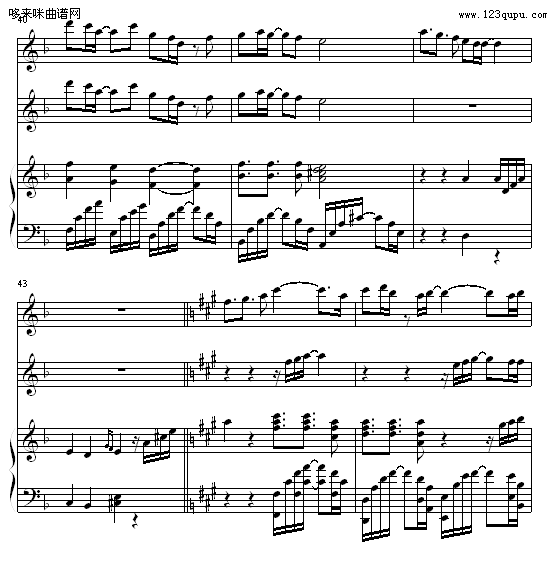 哆来咪曲谱网
www.123qupu.com
40
43